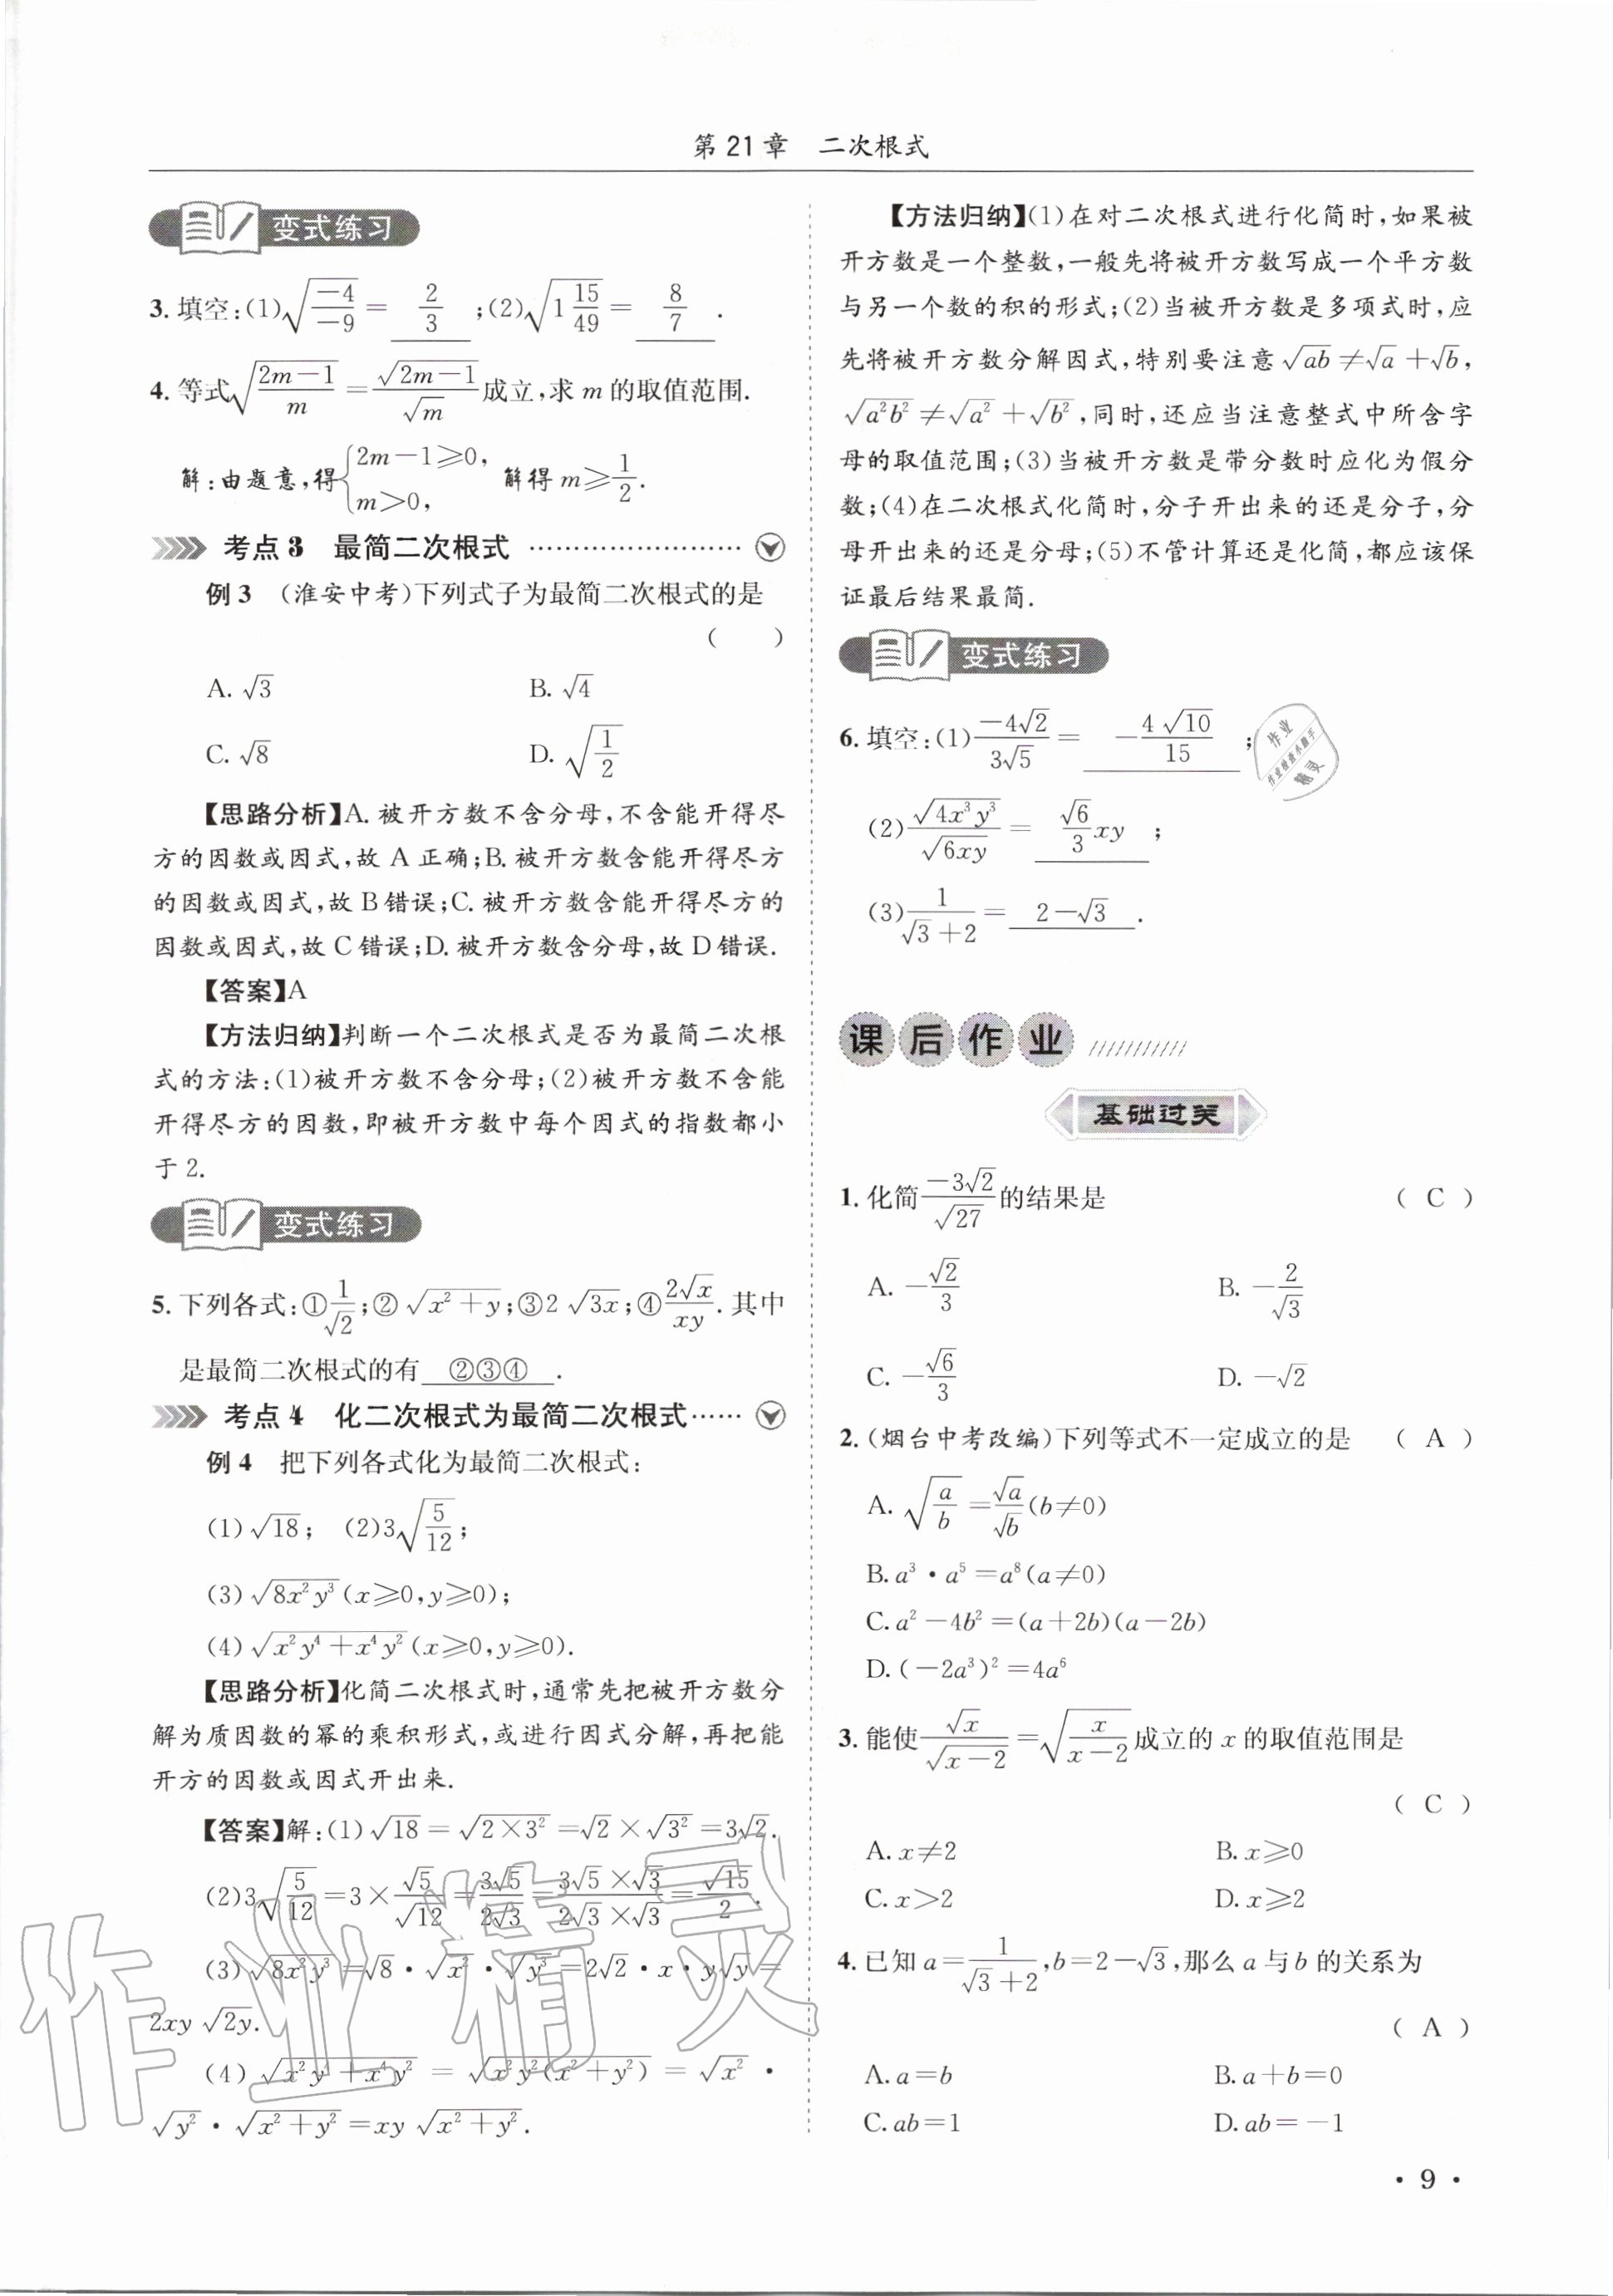 第21章 二次根式
变式练习
3. 填空:(1)√(−4/−9) = 2/3 ;(2)√(1 15/49) = 8/7 .
4. 等式√((2m−1)/m) = √(2m−1)/√m 成立,求 m 的取值范围.
解:由题意,得{2m−1≥0, m>0, 解得 m≥1/2.
考点3 最简二次根式 ……………………
例3 (淮安中考)下列式子为最简二次根式的是
( )
A. √3 B. √4
C. √8 D. √(1/2)
【思路分析】A. 被开方数不含分母,不含能开得尽
方的因数或因式,故 A 正确;B. 被开方数含能开得尽方
的因数或因式,故 B 错误;C. 被开方数含能开得尽方的
因数或因式,故 C 错误;D. 被开方数含分母,故 D 错误.
【答案】A
【方法归纳】判断一个二次根式是否为最简二次根
式的方法:(1)被开方数不含分母;(2)被开方数不含能
开得尽方的因数,即被开方数中每个因式的指数都小
于 2.
变式练习
5. 下列各式:①1/√2;②√(x²+y);③2√(3x);④2√x/(xy). 其中
是最简二次根式的有 ②③④ .
考点4 化二次根式为最简二次根式……
例4 把下列各式化为最简二次根式:
(1)√18; (2)3√(5/12);
(3)√(8x²y³)(x≥0,y≥0);
(4)√(x²y⁴+x⁴y²)(x≥0,y≥0).
【思路分析】化简二次根式时,通常先把被开方数分
解为质因数的幂的乘积形式,或进行因式分解,再把能
开方的因数或因式开出来.
【答案】解:(1)√18=√(2×3²)=√2×√(3²)=3√2.
(2)3√(5/12)=3×√5/√12=3√5/2√3=(3√5×√3)/(2√3×√3)=√15/2.
(3)√(8x²y³)=√8·√(x²)·√(y³)=2√2·x·y√y=
2xy√(2y).
(4)√(x²y⁴+x⁴y²)=√(x²y²(x²+y²))=√(x²)·
√(y²)·√(x²+y²)=xy√(x²+y²).
【方法归纳】(1)在对二次根式进行化简时,如果被
开方数是一个整数,一般先将被开方数写成一个平方数
与另一个数的积的形式;(2)当被开方数是多项式时,应
先将被开方数分解因式,特别要注意√(ab)≠√a+√b,
√(a²b²)≠√(a²)+√(b²),同时,还应当注意整式中所含字
母的取值范围;(3)当被开方数是带分数时应化为假分
数;(4)在二次根式化简时,分子开出来的还是分子,分
母开出来的还是分母;(5)不管计算还是化简,都应该保
证最后结果最简.
变式练习
6. 填空:(1)−4√2/3√5 = −4√10/15 ;
(2)√(4x³y³)/√(6xy) = (√6/3)xy ;
(3)1/(√3+2) = 2−√3 .
课后作业
基础过关
1. 化简−3√2/√27的结果是 ( C )
A. −√2/3 B. −2/√3
C. −√6/3 D. −√2
2. (烟台中考改编)下列等式不一定成立的是 ( A )
A. √(a/b)=√a/√b(b≠0)
B. a³·a⁵=a⁸(a≠0)
C. a²−4b²=(a+2b)(a−2b)
D. (−2a³)²=4a⁶
3. 能使√x/√(x−2)=√(x/(x−2))成立的 x 的取值范围是
( C )
A. x≠2 B. x≥0
C. x>2 D. x≥2
4. 已知 a=1/(√3+2),b=2−√3,那么 a 与 b 的关系为
( A )
A. a=b B. a+b=0
C. ab=1 D. ab=−1
· 9 ·
作业精灵
作业
作业检查小助手
精灵